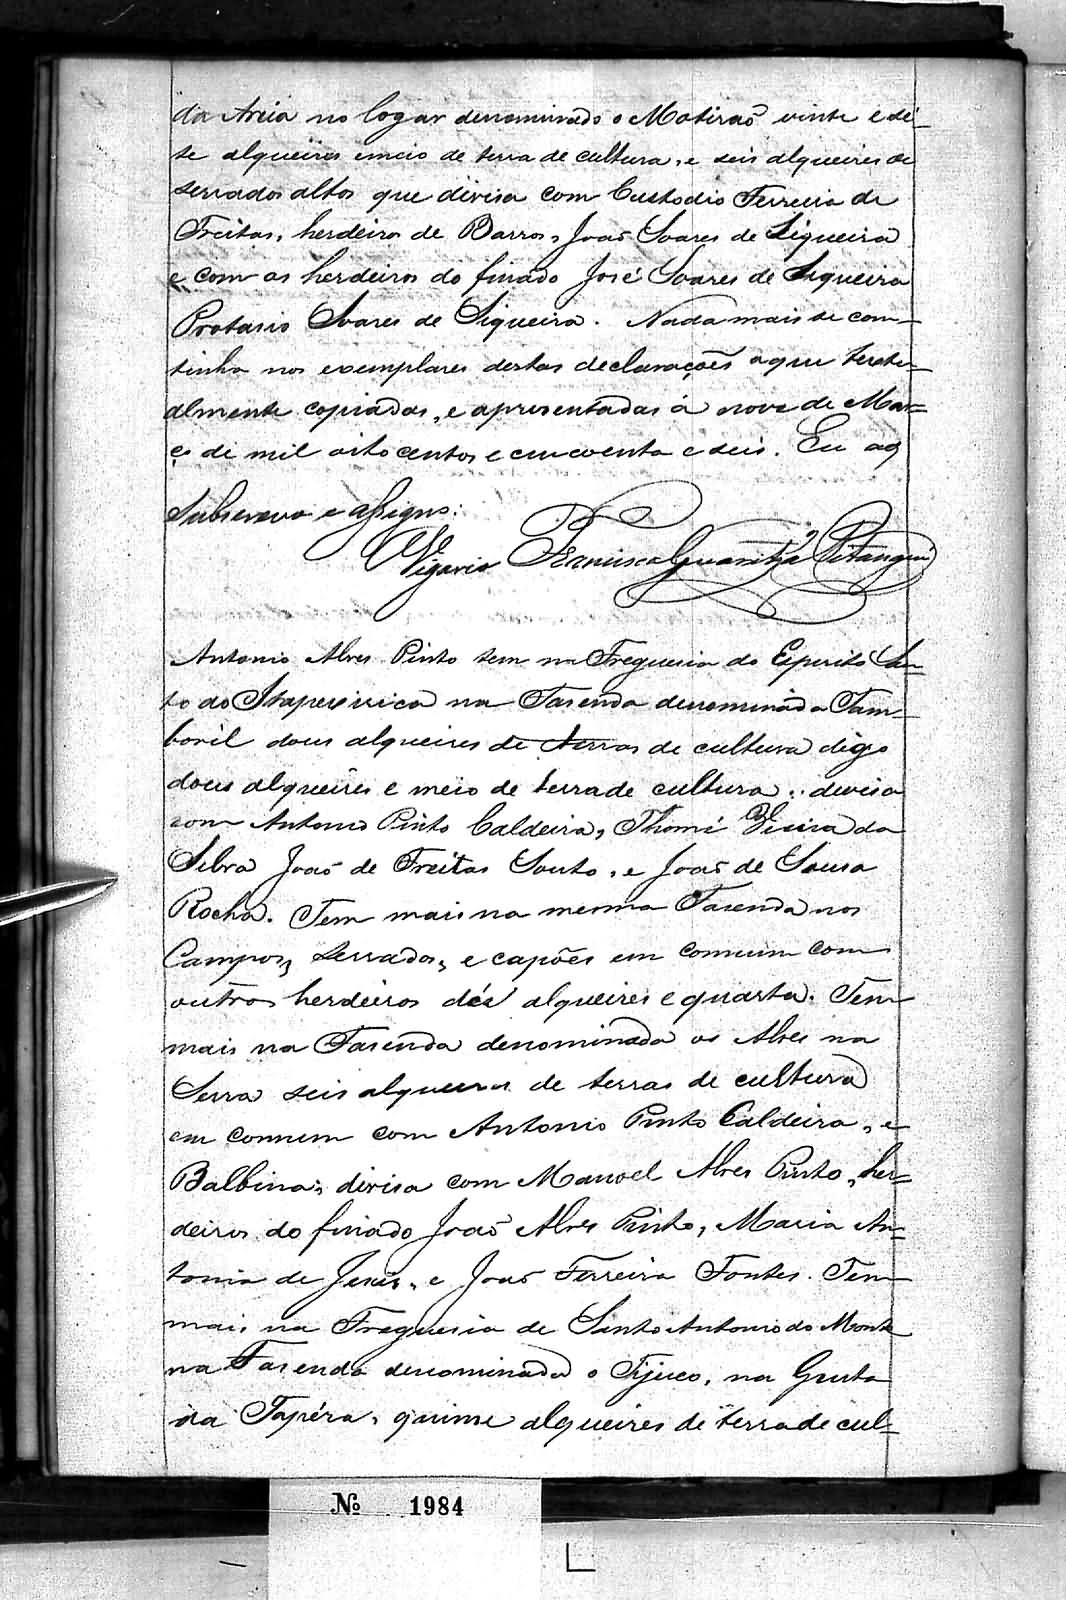 da Areia no logar denominado o Motirão vinte e se-
te alqueires e meio de terra de cultura, e seis alqueires de
serrados altos que divisa com Custodio Ferreira de
Freitas, herdeiros de Barros, João Soares de Siqueira
e com os herdeiros do finado José Soares de Siqueira
Protasio Soares de Siqueira. Nada mais se con-
tinha nos exemplares destas declarações aqui textu-
almente copiadas, e apresentadas á nove de Mar-
ço de mil oito centos e cincoenta e seis. Eu as
Subscrevo e assigno.
Vigario Francisco Guaritá Pitangui
Antonio Alves Pinto tem na Freguesia do Espirito San-
to do Itapecirica na Fasenda denominada Tam-
boril dous alqueires de terras de cultura digo
dous alqueires e meio de terra de cultura: divisa
com Antonio Pinto Caldeira, Thomé Vieira da
Silva João de Freitas Souto, e João de Sousa
Rocha. Tem mais na mesma Fasenda nos
Campos, serrados, e capões em comum com
outros herdeiros dés alqueires e quarta. Tem
mais na Fasenda denominada os Alves na
Serra seis alqueires de terras de cultura
em comum com Antonio Pinto Caldeira, e
Balbina; divisa com Manoel Alves Pinto, her-
deiros do finado João Alves Pinto, Maria An-
tonia de Jesus, e João Ferreira Fontes. Tem
mais na Freguesia de Santo Antonio do Monte
na Fasenda denominada o Tijuco, na Gruta
da Tapéra, quinse alqueires de terra de cul-
№ 1984